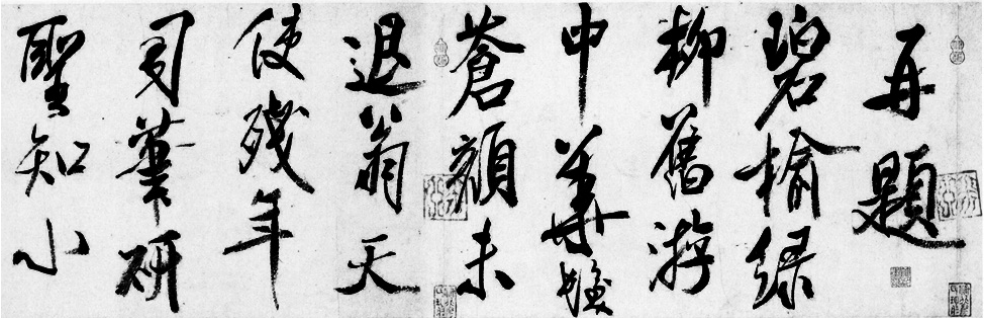 再題
碧榆綠
柳舊游
中華髮
蒼顏未
退翁天
使殘年
司筆研
聖知小